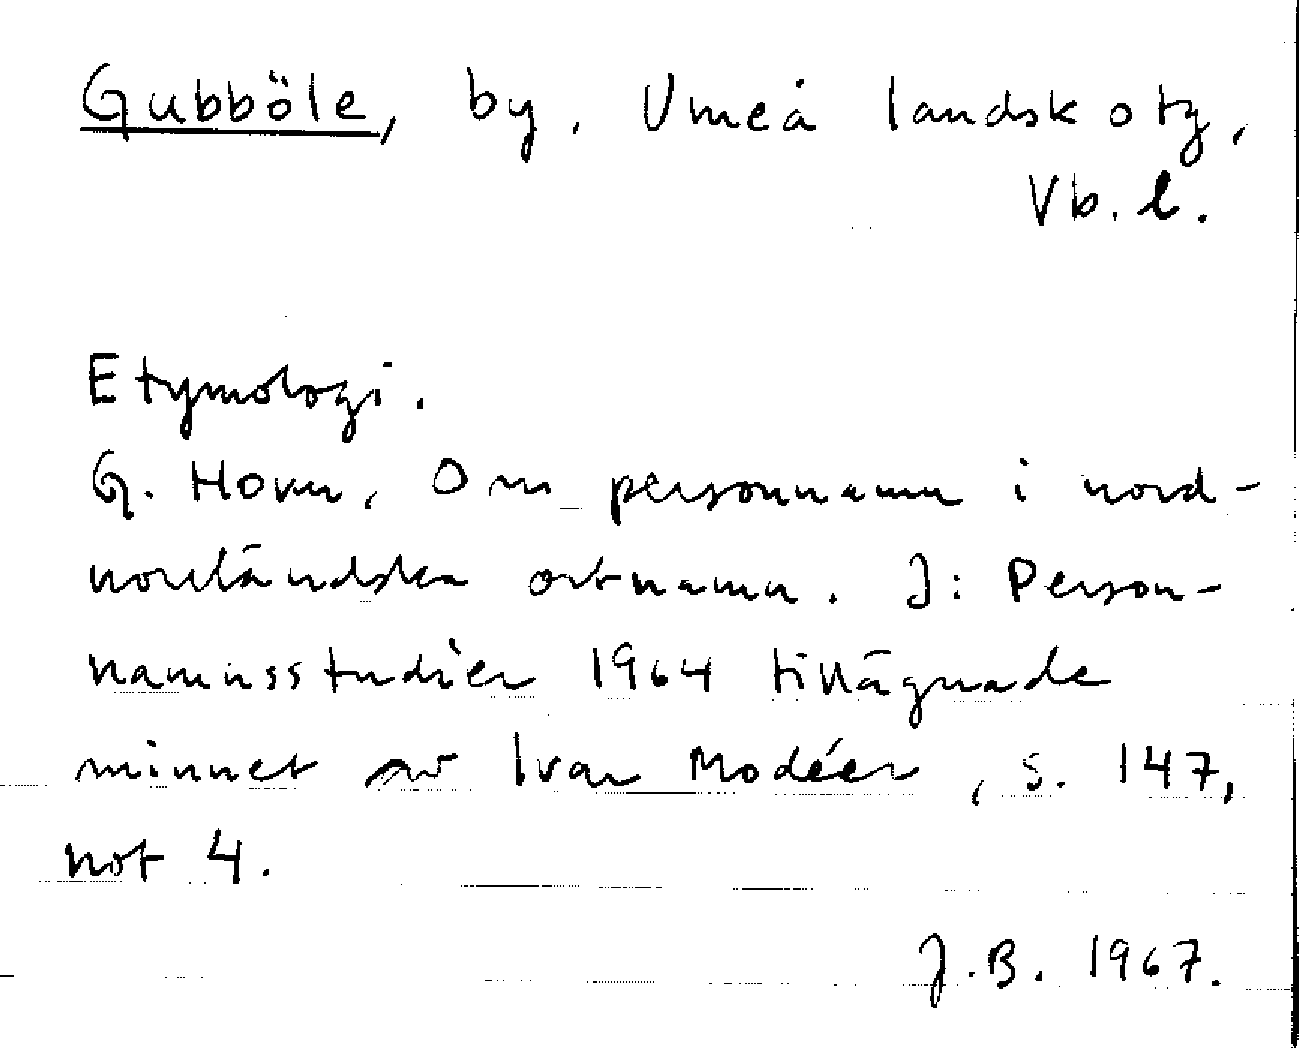 Gubböle, by, Umeå landsk otg,
Vb. l.
Etymologi.
G. Horn, Om personnamn i nord-
norrländska ortnamn. I: Person-
namnsstudier 1964 tillägnade
minnet av Ivar Modéer, s. 147,
not 4.
J.B. 1967.